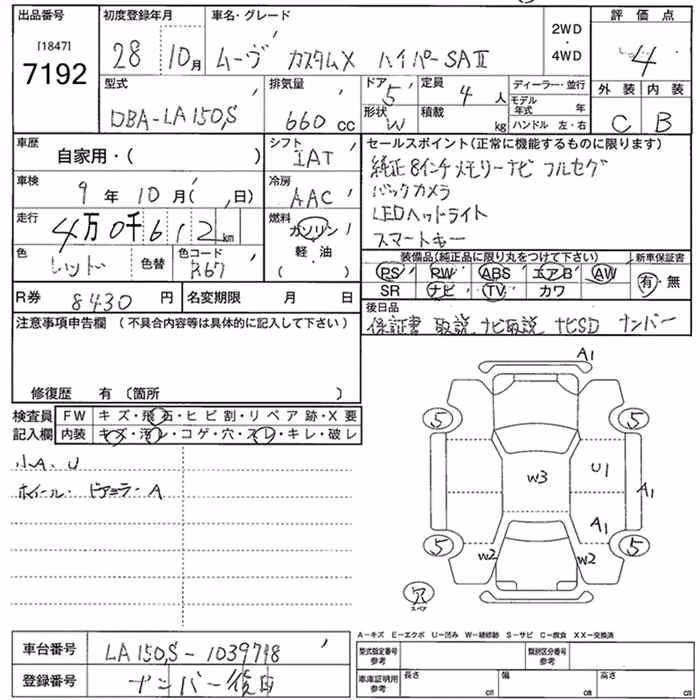 出品番号 初度登録年月 車名・グレード 評価点
[1847]
7192 28 10月 ムーヴ カスタムX ハイパーSAⅡ 2WD・4WD 4
型式 排気量 ドア 定員 ディーラー・並行 外装 内装
DBA-LA150S 660cc 5 4人 モデル年式 年
形状 W 積載 kg ハンドル 左・右 C B
車歴 シフト セールスポイント(正常に機能するものに限ります)
自家用・( ) IAT 純正8インチメモリーナビ フルセグ
車検 冷房 バックカメラ
9年10月( 日) AAC LEDヘッドライト
走行 燃料 スマートキー
4万0千612km ガソリン
色 色替 色コード 軽・油 装備品(純正品に限り丸をつけて下さい) 新車保証書
レッド R67 ( ・ ) PS PW ABS エアB AW 有・無
SR ナビ TV カワ
R券 8430円 名変期限 月 日 後日品
保証書 取説 ナビ取説 ナビSD ナンバー
注意事項申告欄 (不具合内容等は具体的に記入して下さい)
修復歴 有 〔箇所 〕
検査員 FW キズ・飛石・ヒビ割・リペア跡・X要
記入欄 内装 キズ・汚レ・コゲ・穴・スレ・キレ・破レ
小A、U
ホイール・ドアミラーA
A1
5 5
W3 U1 A1
A1
5 W2 W2 5
穴
スペア
A-キズ E-エクボ U-凹み W-補修跡 S-サビ C-腐食 XX-交換済
車台番号 LA150S-1039718 型式指定番号 参考 類別区分番号 参考
登録番号 ナンバー後日 車庫証明用 参考 長さ cm 幅 cm 高さ cm